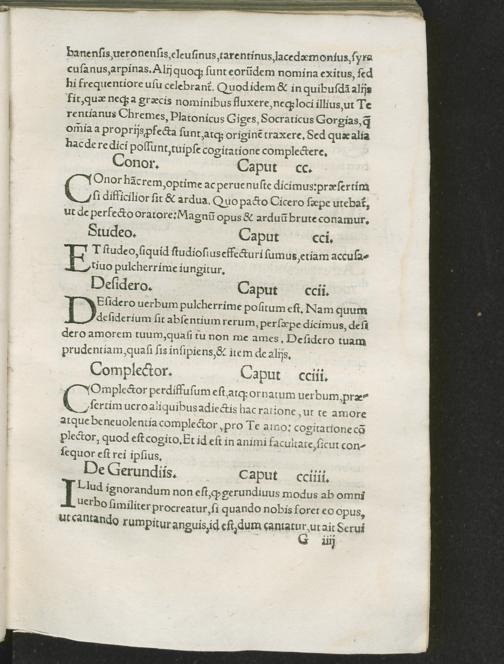 banensis,ueronensis,eleusinus,tarentinus,lacedæmonius,syra
cusanus,arpinas. Alij quoq; sunt eorūdem nomina exitus, sed
hi frequentiore usu celebrant̄. Quod idem & in quibusdā alijs
fit,quæ neq; a græcis nominibus fluxere,neq; loci illius,ut Te
rentianus Chremes, Platonicus Giges, Socraticus Gorgias, q̄
om̄ia a proprijs ꝓfecta sunt,atq; originē traxere. Sed quæ alia
hac de re dici possunt,tu ipse cogitatione complectere.
Conor. Caput cc.
COnor hāc rem,optime ac peruenuste dicimus:præsertim
si difficilior sit & ardua. Quo pacto Cicero sæpe utebat̄,
ut de perfecto oratore: Magnū opus & arduū brute conamur.
Studeo. Caput cci.
ET studeo,siquid studiosius effecturi sumus,etiam accusa-
tiuo pulcherrime iungitur.
Desidero. Caput ccii.
DEsidero uerbum pulcherrime positum est. Nam quum
desiderium sit absentium rerum, persæpe dicimus, desi
dero amorem tuum,quasi tu non me ames. Desidero tuam
prudentiam,quasi sis insipiens,& item de alijs.
Complector. Caput cciii.
COmplector perdiffusum est,atq; ornatum uerbum,præ-
sertim uero aliquibus adiectis hac ratione, ut te amore
atque beneuolentia complector, pro Te amo: cogitatione cō
plector, quod est cogito. Et id est in animi facultate,sicut con-
sequor est rei ipsius.
De Gerundiis. Caput cciiii.
ILlud ignorandum non est,ꝙ gerundiuus modus ab omni
uerbo similiter procreatur, si quando nobis foret eo opus,
ut cantando rumpitur anguis,id est,dum cantatur,ut ait Serui
G iiij